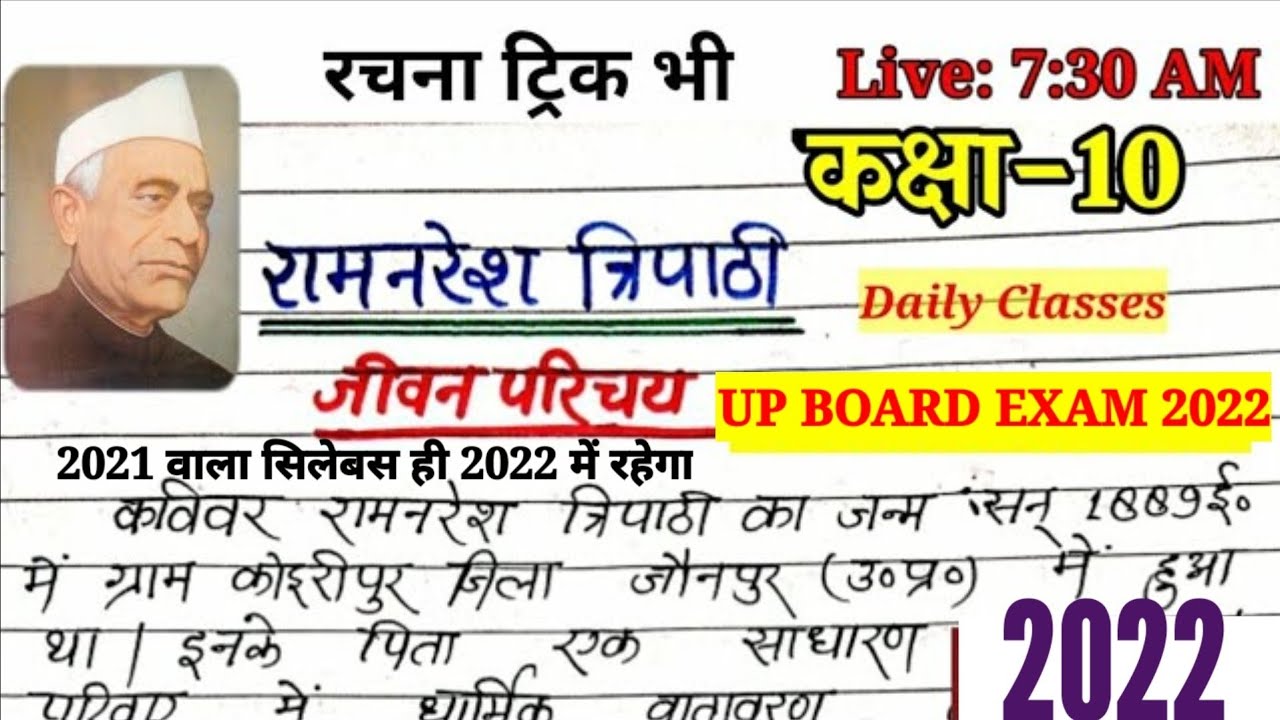 रचना ट्रिक भी
Live: 7:30 AM
कक्षा-10
रामनरेश त्रिपाठी
Daily Classes
जीवन परिचय
UP BOARD EXAM 2022
2021 वाला सिलेबस ही 2022 में रहेगा
कविवर रामनरेश त्रिपाठी का जन्म सन् 1889ई०
में ग्राम कोइरीपुर जिला जौनपुर (उ०प्र०) में हुआ
था। इनके पिता एक साधारण
2022
परिवार में धार्मिक वातावरण